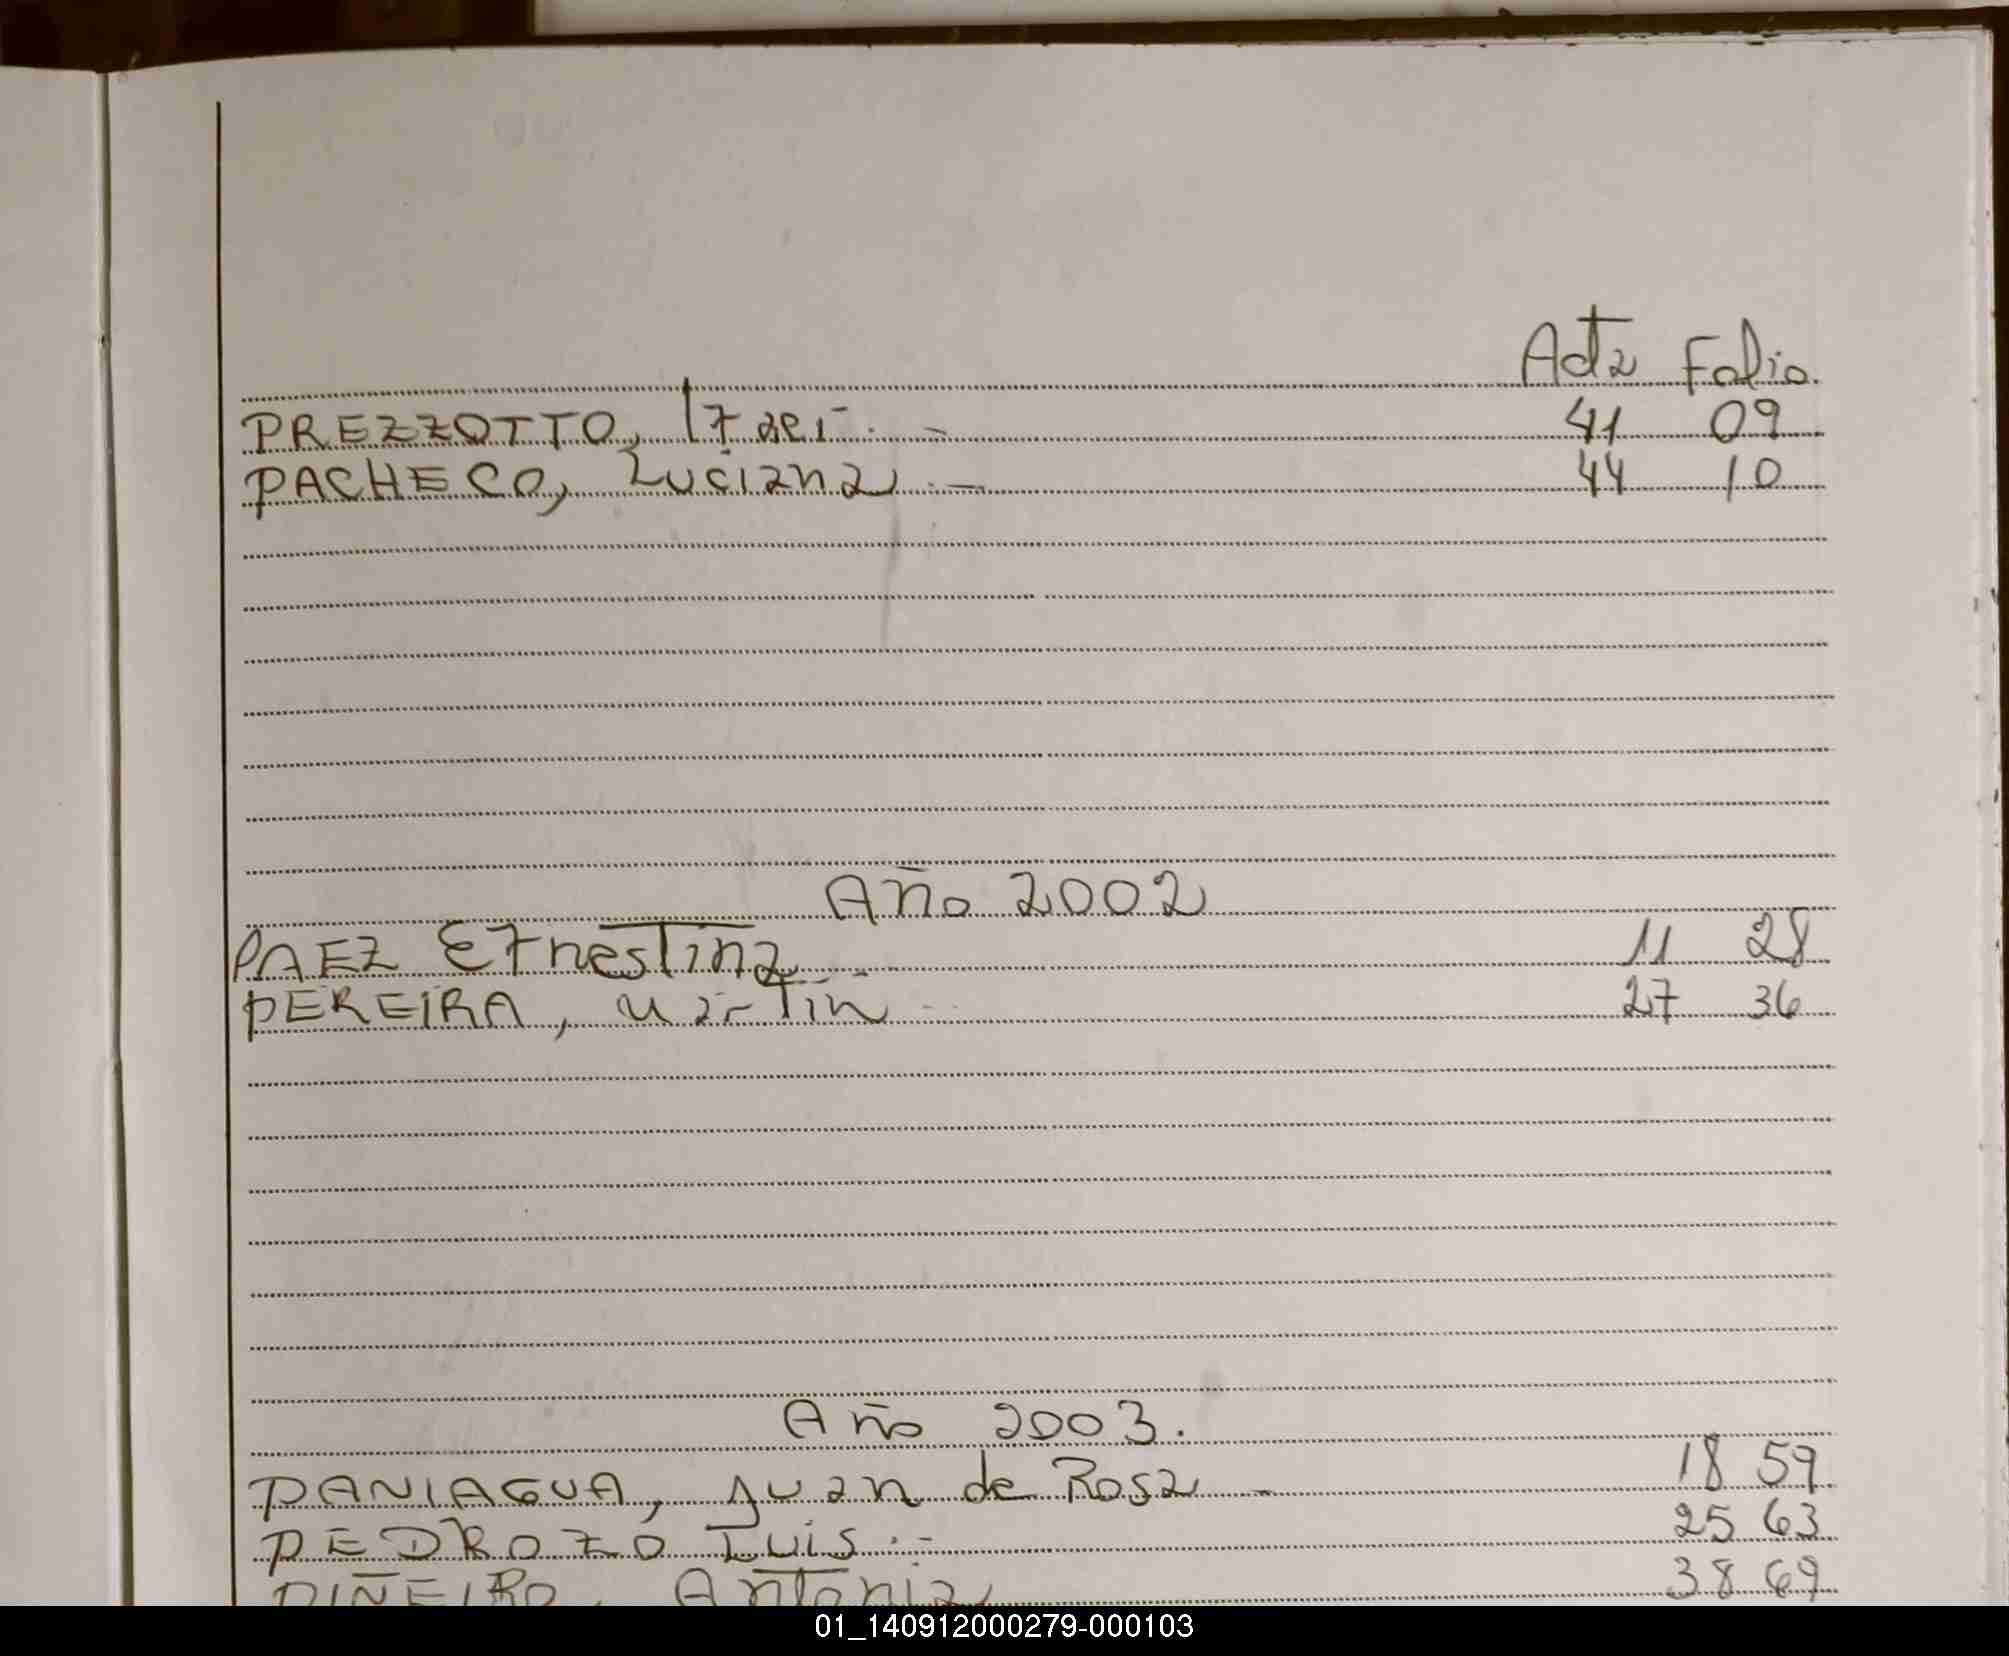 Acta Folio.
PREZZOTTO, 41 09
PACHECO, Luciana.- 44 10
Año 2002
PAEZ Ernestina.- 11 28
PEREIRA, Martin.- 27 36
Año 2003.
PANIAGUA, Juan de Rosa - 18 59
PEDROZO Luis.- 25 63
PIÑEIRO, Antonia 38 69
01_140912000279-000103